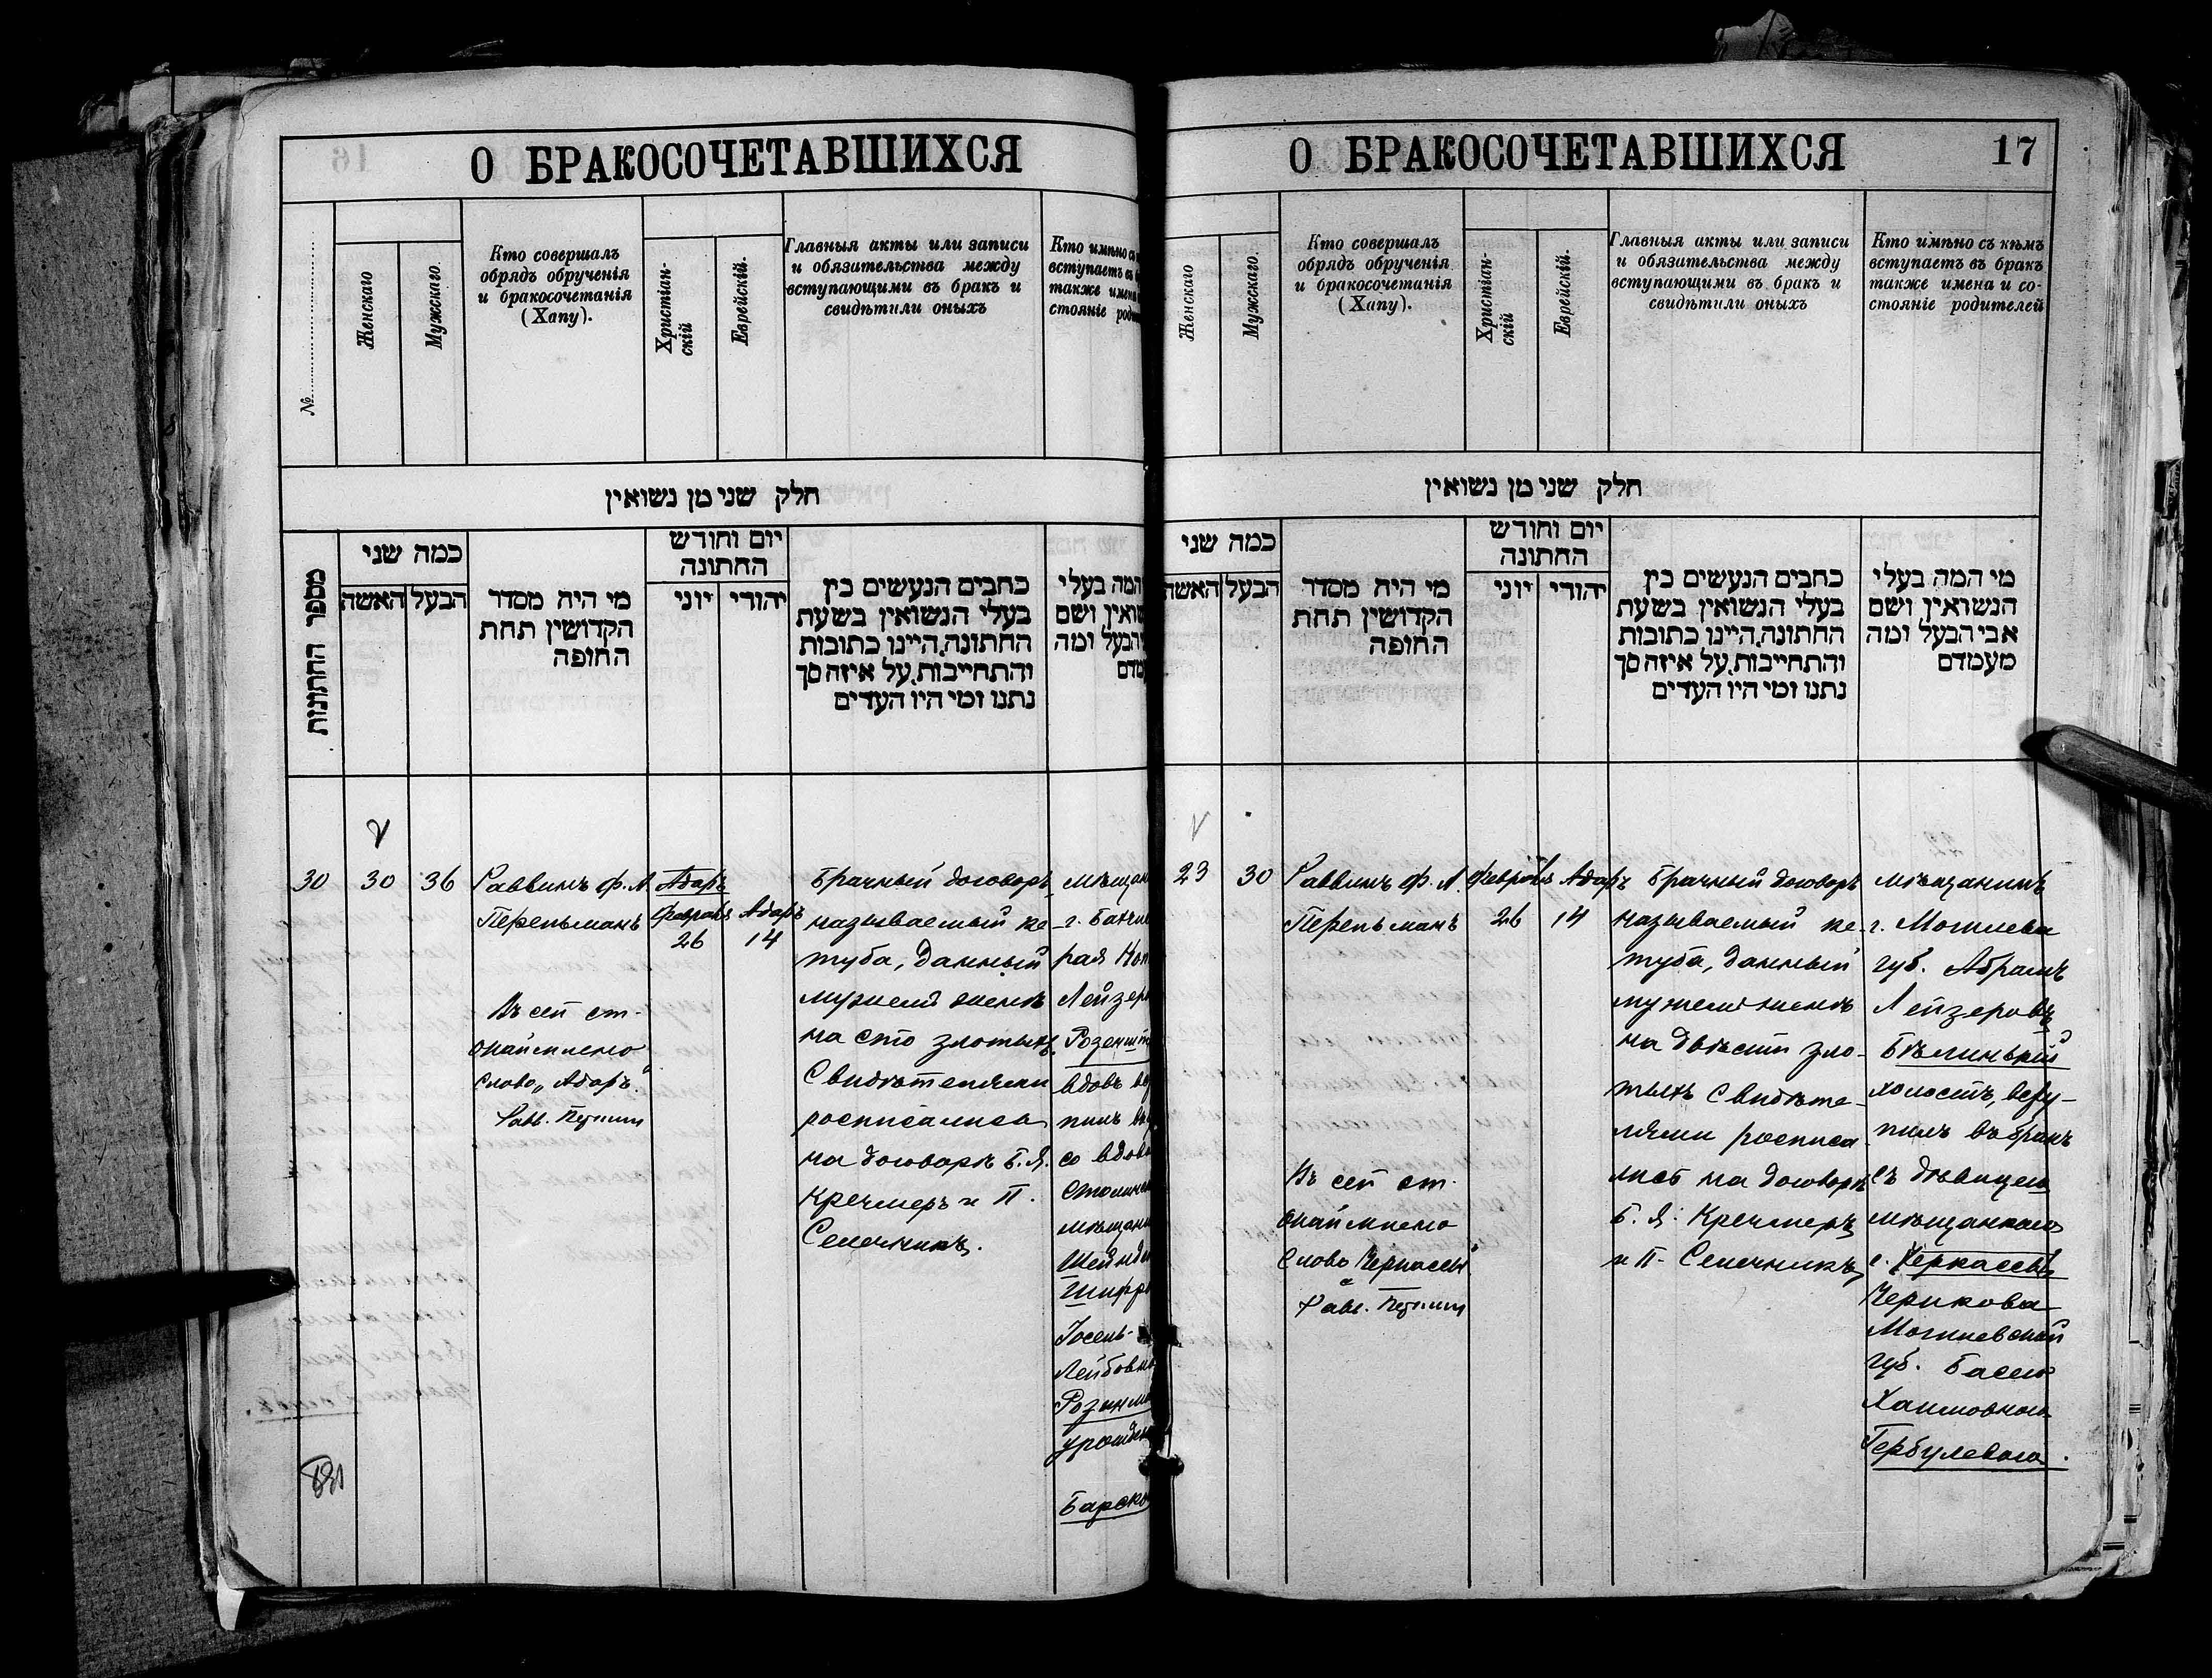 О БРАКОСОЧЕТАВШИХСЯ
№
Женскаго
Мужскаго
Кто совершалъ
обрядъ обрученія
и бракосочетанія
(Хапу).
Христіан-
скій
Еврейскій.
Главныя акты или записи
и обязательства между
вступающими въ бракъ и
свидѣтили оныхъ
Кто имѣно съ
вступаетъ въ
также имена
стояніе
חלק שני מן נשואין
מספר החתונות
כמה שני
האשה
הבעל
מי היה מסדר
הקדושין תחת
החופה
יום וחודש
החתונה
יוני
יהודי
כתבים הנעשים בין
בעלי הנשואין בשעת
החתונה, היינו כתובות
והתחייבות, על איזה סך
נתנו ומי היו העדים
המה בעלי
ושם
הבעל ומה
30
30
36
Раввинъ Ф. А.
Перельманъ
Въ сей ст.
слово „Адаръ"
Рав.
Адаръ
Февраль
26
Адаръ
14
Брачный договоръ,
называемый ке-
туба, данный
мужемъ женѣ
на сто злотыхъ.
Свидѣтелями
росписались
на договорѣ Б. Я.
Кречмеръ и П.
Сепечникъ.
мѣщан
г.
рая
Лейзер
вдовъ
пилъ
со вдов
мѣщан
Шейнд
Лейбовн
урожден
Барск
О БРАКОСОЧЕТАВШИХСЯ
17
Женскаго
Мужскаго
Кто совершалъ
обрядъ обрученія
и бракосочетанія
(Хапу).
Христіан-
скій
Еврейскій.
Главныя акты или записи
и обязательства между
вступающими въ бракъ и
свидѣтили оныхъ
Кто имѣно съ кѣмъ
вступаетъ въ бракъ
также имена и со-
стояніе родителей
חלק שני מן נשואין
כמה שני
האשה
הבעל
מי היה מסדר
הקדושין תחת
החופה
יום וחודש
החתונה
יוני
יהודי
כתבים הנעשים בין
בעלי הנשואין בשעת
החתונה, היינו כתובות
והתחייבות, על איזה סך
נתנו ומי היו העדים
מי המה בעלי
הנשואין ושם
אבי הבעל ומה
מעמדם
23
30
Раввинъ Ф. А.
Перельманъ
Въ сей ст.
слово „Черкассы"
Рав.
Февраль
26
Адаръ
14
Брачный договоръ
называемый ке-
туба, данный
мужемъ женѣ
на двѣсти зло-
тыхъ Свидѣте-
лями росписа-
лись на договорѣ
Б. Я. Кречмеръ
и П. Сепечникъ,
мѣщанинъ
г. Могилева
губ. Абрамъ
Лейзеровъ
Бѣлинькій
холостъ, всту-
пилъ въ бракъ
съ дѣвицею
мѣщанкою
г. Черкассы
Черикова
Могилевской
губ. Басею
Хаимовною
Гербулевою.